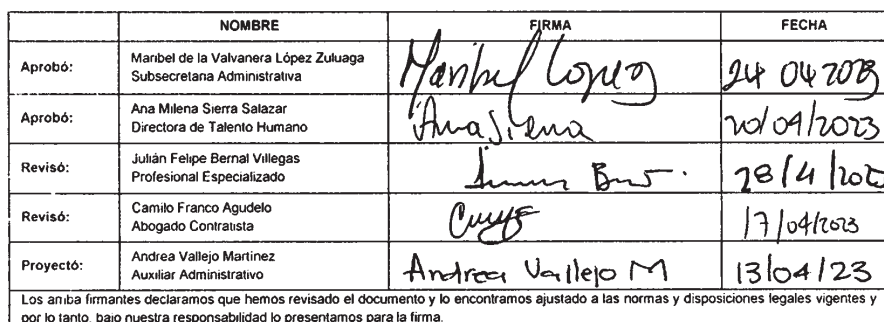 NOMBRE FIRMA FECHA
Aprobó: Maribel de la Valvanera López Zuluaga
Subsecretaria Administrativa
Maribel Lopez 24 04 2023
Aprobó: Ana Milena Sierra Salazar
Directora de Talento Humano
Ana Sierra 20/04/2023
Revisó: Julián Felipe Bernal Villegas
Profesional Especializado
Revisó: Camilo Franco Agudelo
Abogado Contratista
17/04/2023
Proyectó: Andrea Vallejo Martinez
Auxiliar Administrativo
Andrea Vallejo M 13/04/23
Los arriba firmantes declaramos que hemos revisado el documento y lo encontramos ajustado a las normas y disposiciones legales vigentes y
por lo tanto, bajo nuestra responsabilidad lo presentamos para la firma.